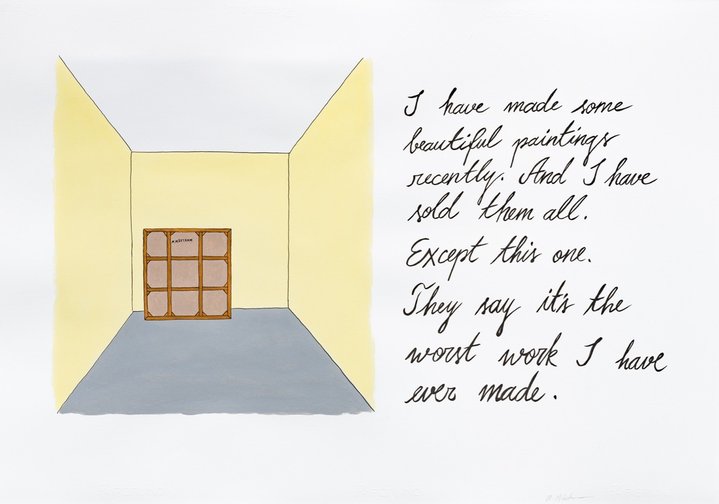 I have made some
beautiful paintings
recently. And I have
sold them all.
Except this one.
They say it's the
worst work I have
ever made.